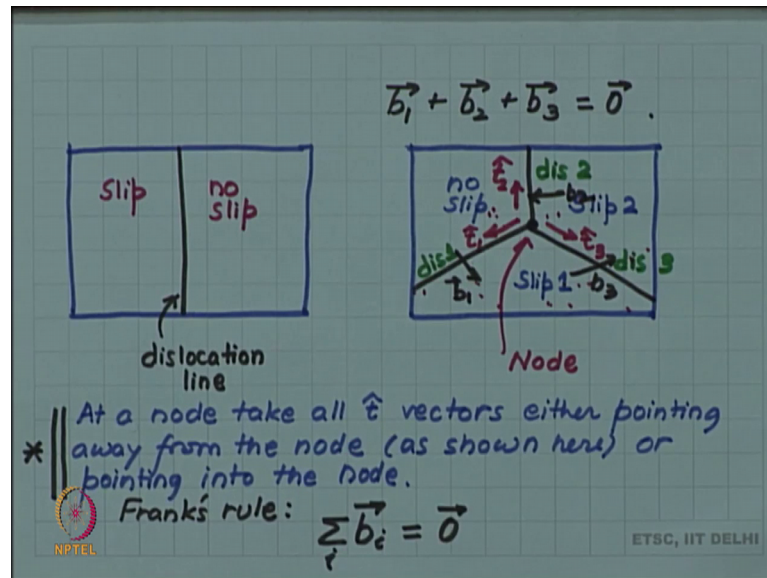 b₁ + b₂ + b₃ = 0 .
slip
no
slip
dislocation
line
no
slip
t̂₂
dis 2
b₂
slip 2
t̂₁
t̂₃
dis 1
dis 3
b₁
slip 1
b₃
Node
* At a node take all t̂ vectors either pointing
away from the node (as shown here) or
pointing into the node.
Frank's rule: Σ bᵢ = 0
i
NPTEL
ETSC, IIT DELHI